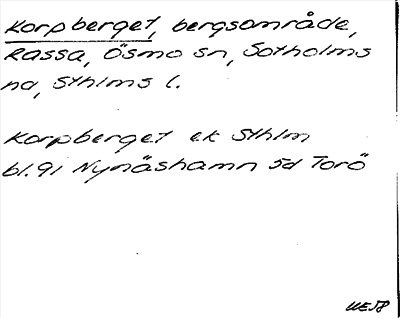 Korpberget, bergsområde,
Rassa, Ösmo sn, Sotholms
hd, Sthlms l.
Korpberget ek Sthlm
bl. 91 Nynäshamn 5d Torö
UE58